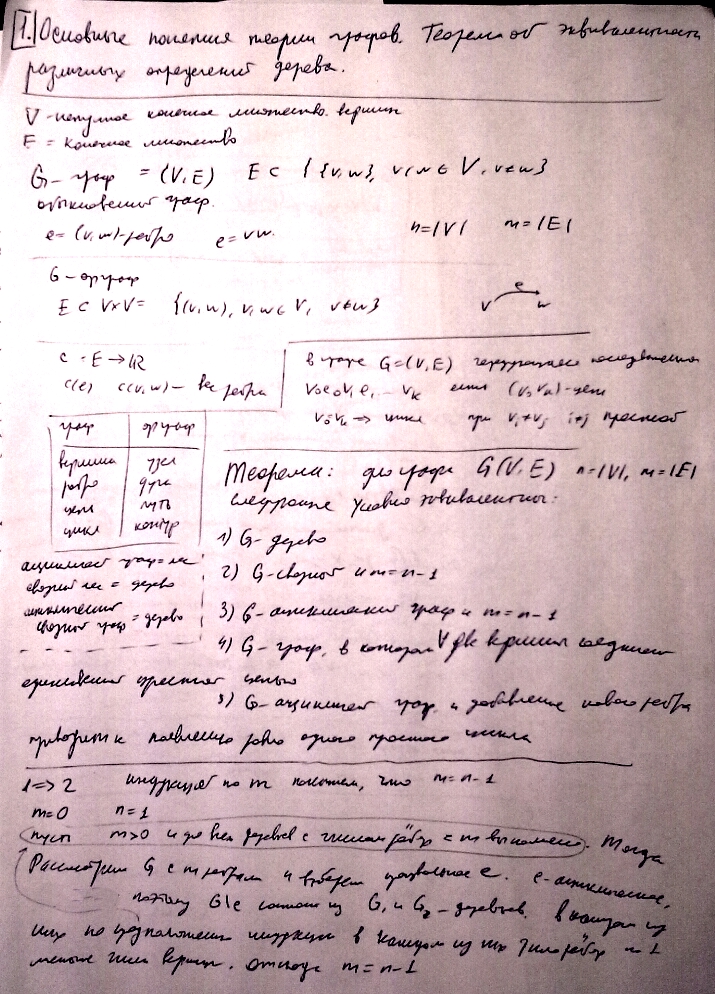 1. Основные понятия теории графов. Теорема об эквивалентности
различных определений дерева.
V - непустое конечное множество вершин
E = конечное множество
G - граф = (V, E) E ⊂ {{v,w}, v,w ∈ V, v≠w}
обыкновенный граф.
e = (v,w) - ребро e = vw. n=|V| m=|E|
G - орграф
E ⊂ V×V = {(v,w), v,w ∈ V, v≠w}
v e w
c: E → R
c(e) c(v,w) - вес ребра
в графе G=(V,E) чередующаяся последовательн
v₀e₀v₁e₁...vₖ есть (v₀vₖ)-цепь
v₀=vₖ → цикл при vᵢ≠vⱼ i≠j простой
граф орграф
вершина узел
ребро дуга
цепь путь
цикл контур
ациклический граф = лес
связный лес = дерево
ациклический
связный граф = дерево
Теорема: для графа G(V,E) n=|V|, m=|E|
следующие условия эквивалентны:
1) G - дерево
2) G - связной и m=n-1
3) G - ациклический граф и m=n-1
4) G - граф, в котором ∀ две вершины соединены
единственной простой цепью
5) G - ациклический граф и добавление нового ребра
приводит к появлению ровно одного простого цикла
1=>2 индукцией по m покажем, что m=n-1
m=0 n=1
пусть m>0 и для всех деревьев с числом рёбер < m выполнено. Тогда
Рассмотрим G с m ребрами и выберем произвольное e. e - ациклическое,
поэтому G\e состоит из G₁ и G₂ - деревьев. В каждом из
них по предположению индукции в каждом из них число рёбер на 1
меньше числа вершин. Откуда m=n-1